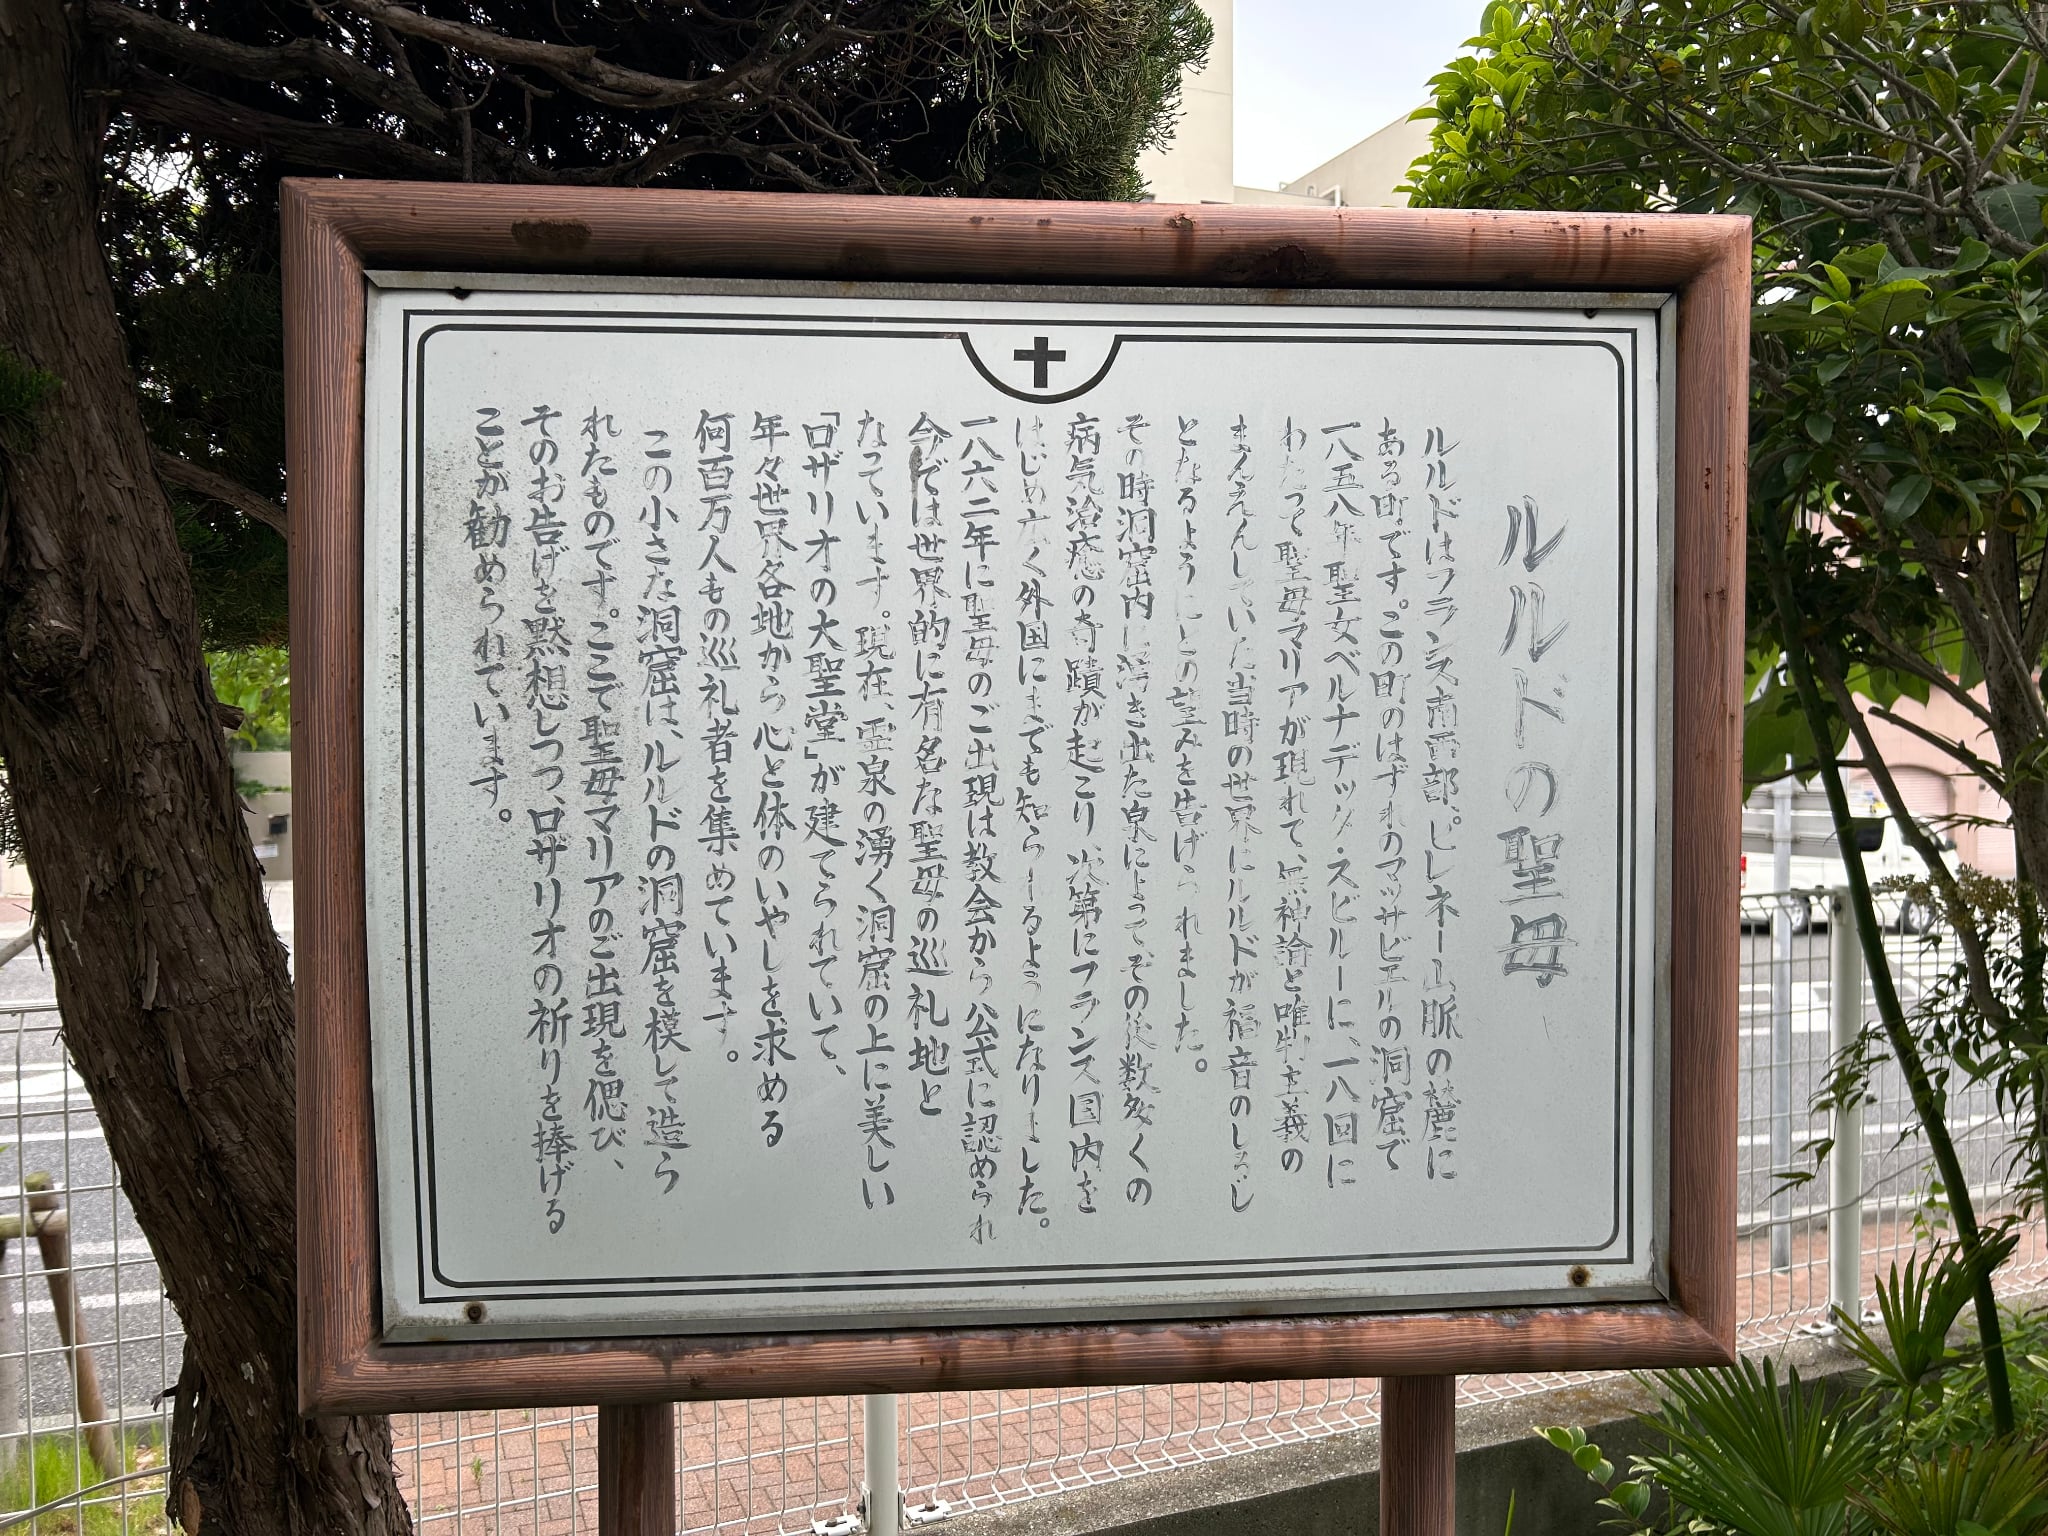 ルルドの聖母
ルルドはフランス南西部、ピレネー山脈の麓に
ある町です。この町のはずれのマッサビエルの洞窟で
一八五八年聖女ベルナデッタ・スビルーに、一八回に
わたって聖母マリアが現れて、無神論と唯物主義の
まんえんしていた当時の世界にルルドが福音のしるし
となるようにとの望みを告げられました。
その時洞窟内に湧き出た泉によって、その後数多くの
病気治癒の奇蹟が起こり、次第にフランス国内を
はじめ広く外国にまでも知られるようになりました。
一八六二年に聖母のご出現は教会から公式に認められ
今では世界的に有名な聖母の巡礼地と
なっています。現在、霊泉の湧く洞窟の上に美しい
「ロザリオの大聖堂」が建てられていて、
年々世界各地から心と体のいやしを求める
何百万人もの巡礼者を集めています。
この小さな洞窟は、ルルドの洞窟を模して造ら
れたものです。ここで聖母マリアのご出現を偲び、
そのお告げを黙想しつつ、ロザリオの祈りを捧げる
ことが勧められています。